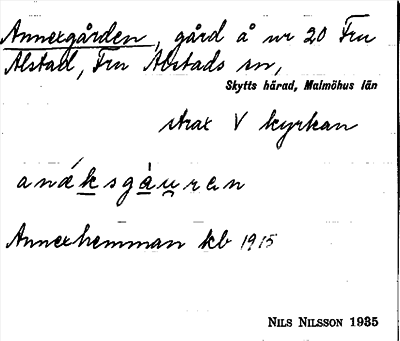 Annexgården, gård å nr 20 Fru
Alstad, Fru Alstads sn,
Skytts härad, Malmöhus län
strax V kyrkan
anǽksgàuren
Annexhemman kb 1915
NILS NILSSON 1935